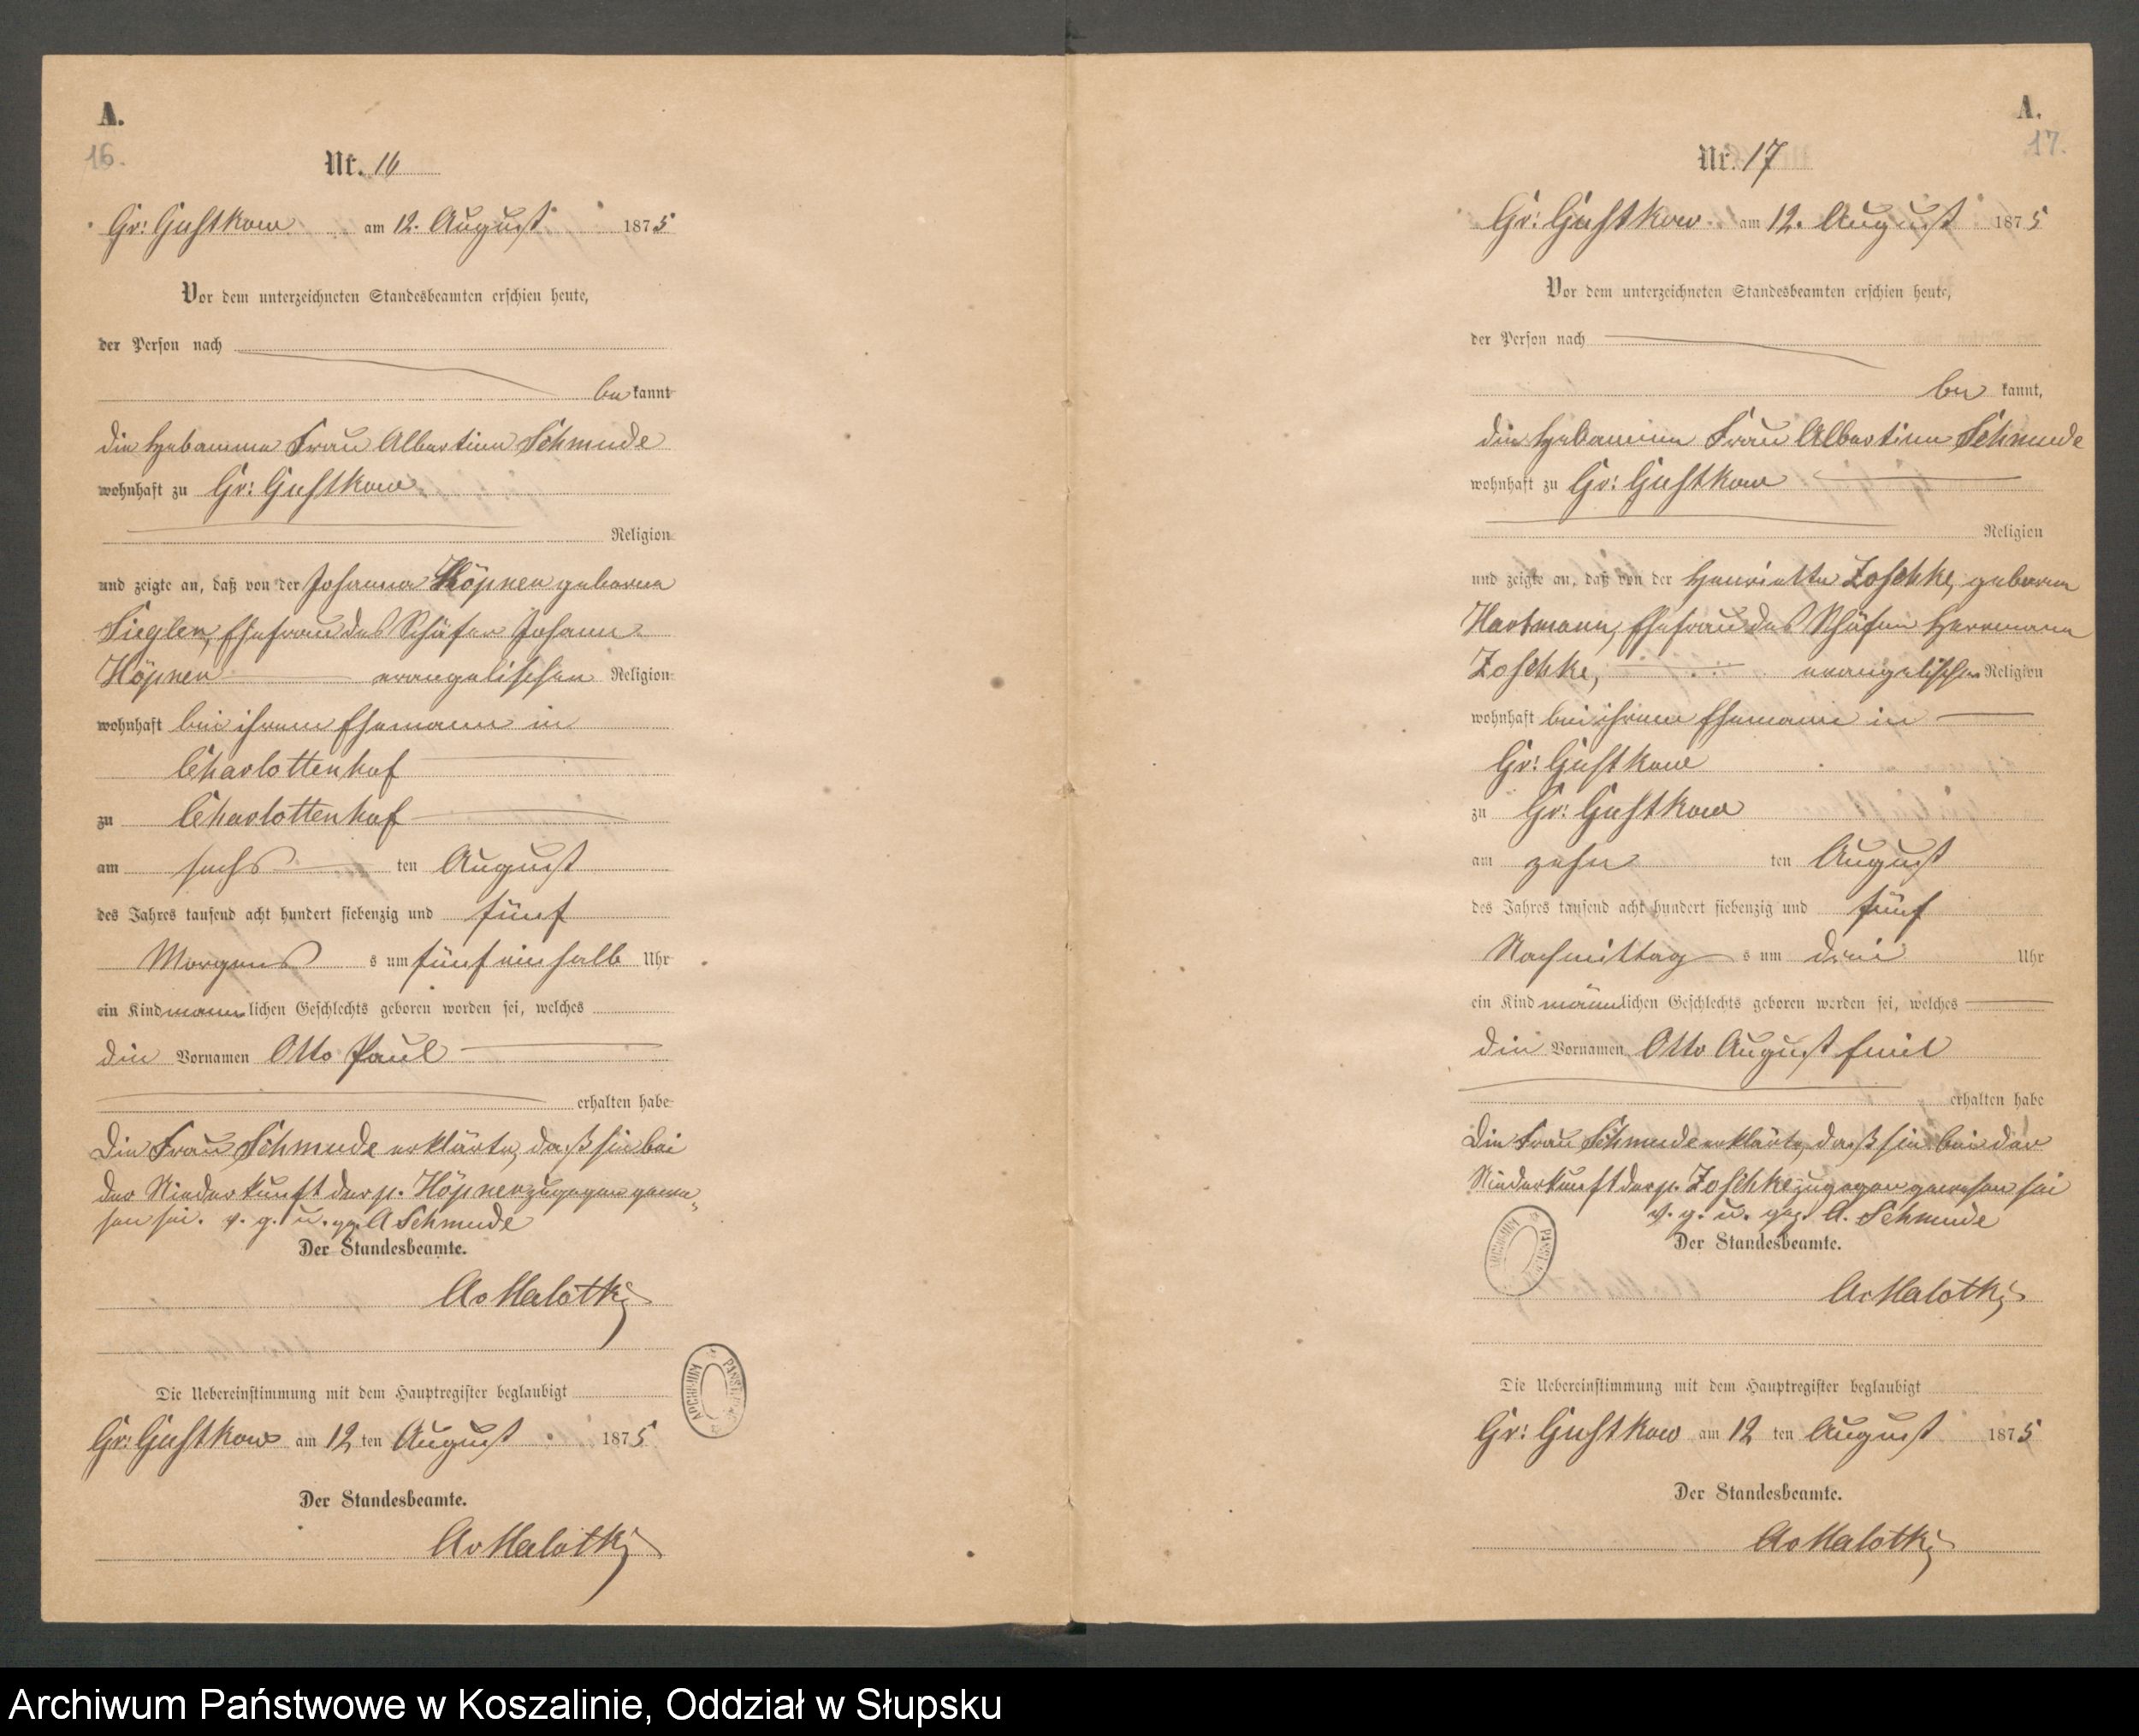 A.
16.
Nr. 16
Gr: Gustkow am 12. August 1875
Vor dem unterzeichneten Standesbeamten erschien heute,
der Person nach
be kannt
die Hebamme Frau Albertine Schmude
wohnhaft zu Gr: Gustkow
Religion
und zeigte an, daß von der Johanna Höpner geborne
Siegler, Ehefrau des Schäfer Johann
Höpner evangelischer Religion
wohnhaft bei ihrem Ehemann in
Charlottenhof
zu Charlottenhof
am sechs ten August
des Jahres tausend acht hundert siebenzig und fünf
Morgens s um fünf ein halb Uhr
ein Kind männlichen Geschlechts geboren worden sei, welches
die Vornamen Otto Paul
erhalten habe
Die Frau Schmude erklärte, daß sie bei
der Niederkunft der p. Höpner zugegen gewe„
sen sei. v. g. u. gz. A Schmude
Der Standesbeamte.
AvMalotki
Die Uebereinstimmung mit dem Hauptregister beglaubigt
Gr: Gustkow am 12 ten August 1875
Der Standesbeamte.
AvMalotki
ARCHIWUM PAŃSTWOWE
A.
17.
Nr. 17
Gr: Gustkow am 12. August 1875
Vor dem unterzeichneten Standesbeamten erschien heute,
der Person nach
be kannt,
die Hebamme Frau Albertine Schmude
wohnhaft zu Gr: Gustkow
Religion
und zeigte an, daß von der Henriette Zoschke, geborne
Hartmann, Ehefrau des Schäfer Herrmann
Zoschke, evangelischer Religion
wohnhaft bei ihrem Ehemann in
Gr: Gustkow
zu Gr: Gustkow
am zehn ten August
des Jahres tausend acht hundert siebenzig und fünf
Nachmittag s um drei Uhr
ein Kind männlichen Geschlechts geboren worden sei, welches
die Vornamen Otto August Emil
erhalten habe
Die Frau Schmude erklärte, daß sie bei der
Niederkunft der p. Zoschke zugegen gewesen sei
v. g. u. gez. A. Schmude
Der Standesbeamte.
AvMalotki
Die Uebereinstimmung mit dem Hauptregister beglaubigt
Gr: Gustkow am 12 ten August 1875
Der Standesbeamte.
AvMalotki
Archiwum Państwowe w Koszalinie, Oddział w Słupsku